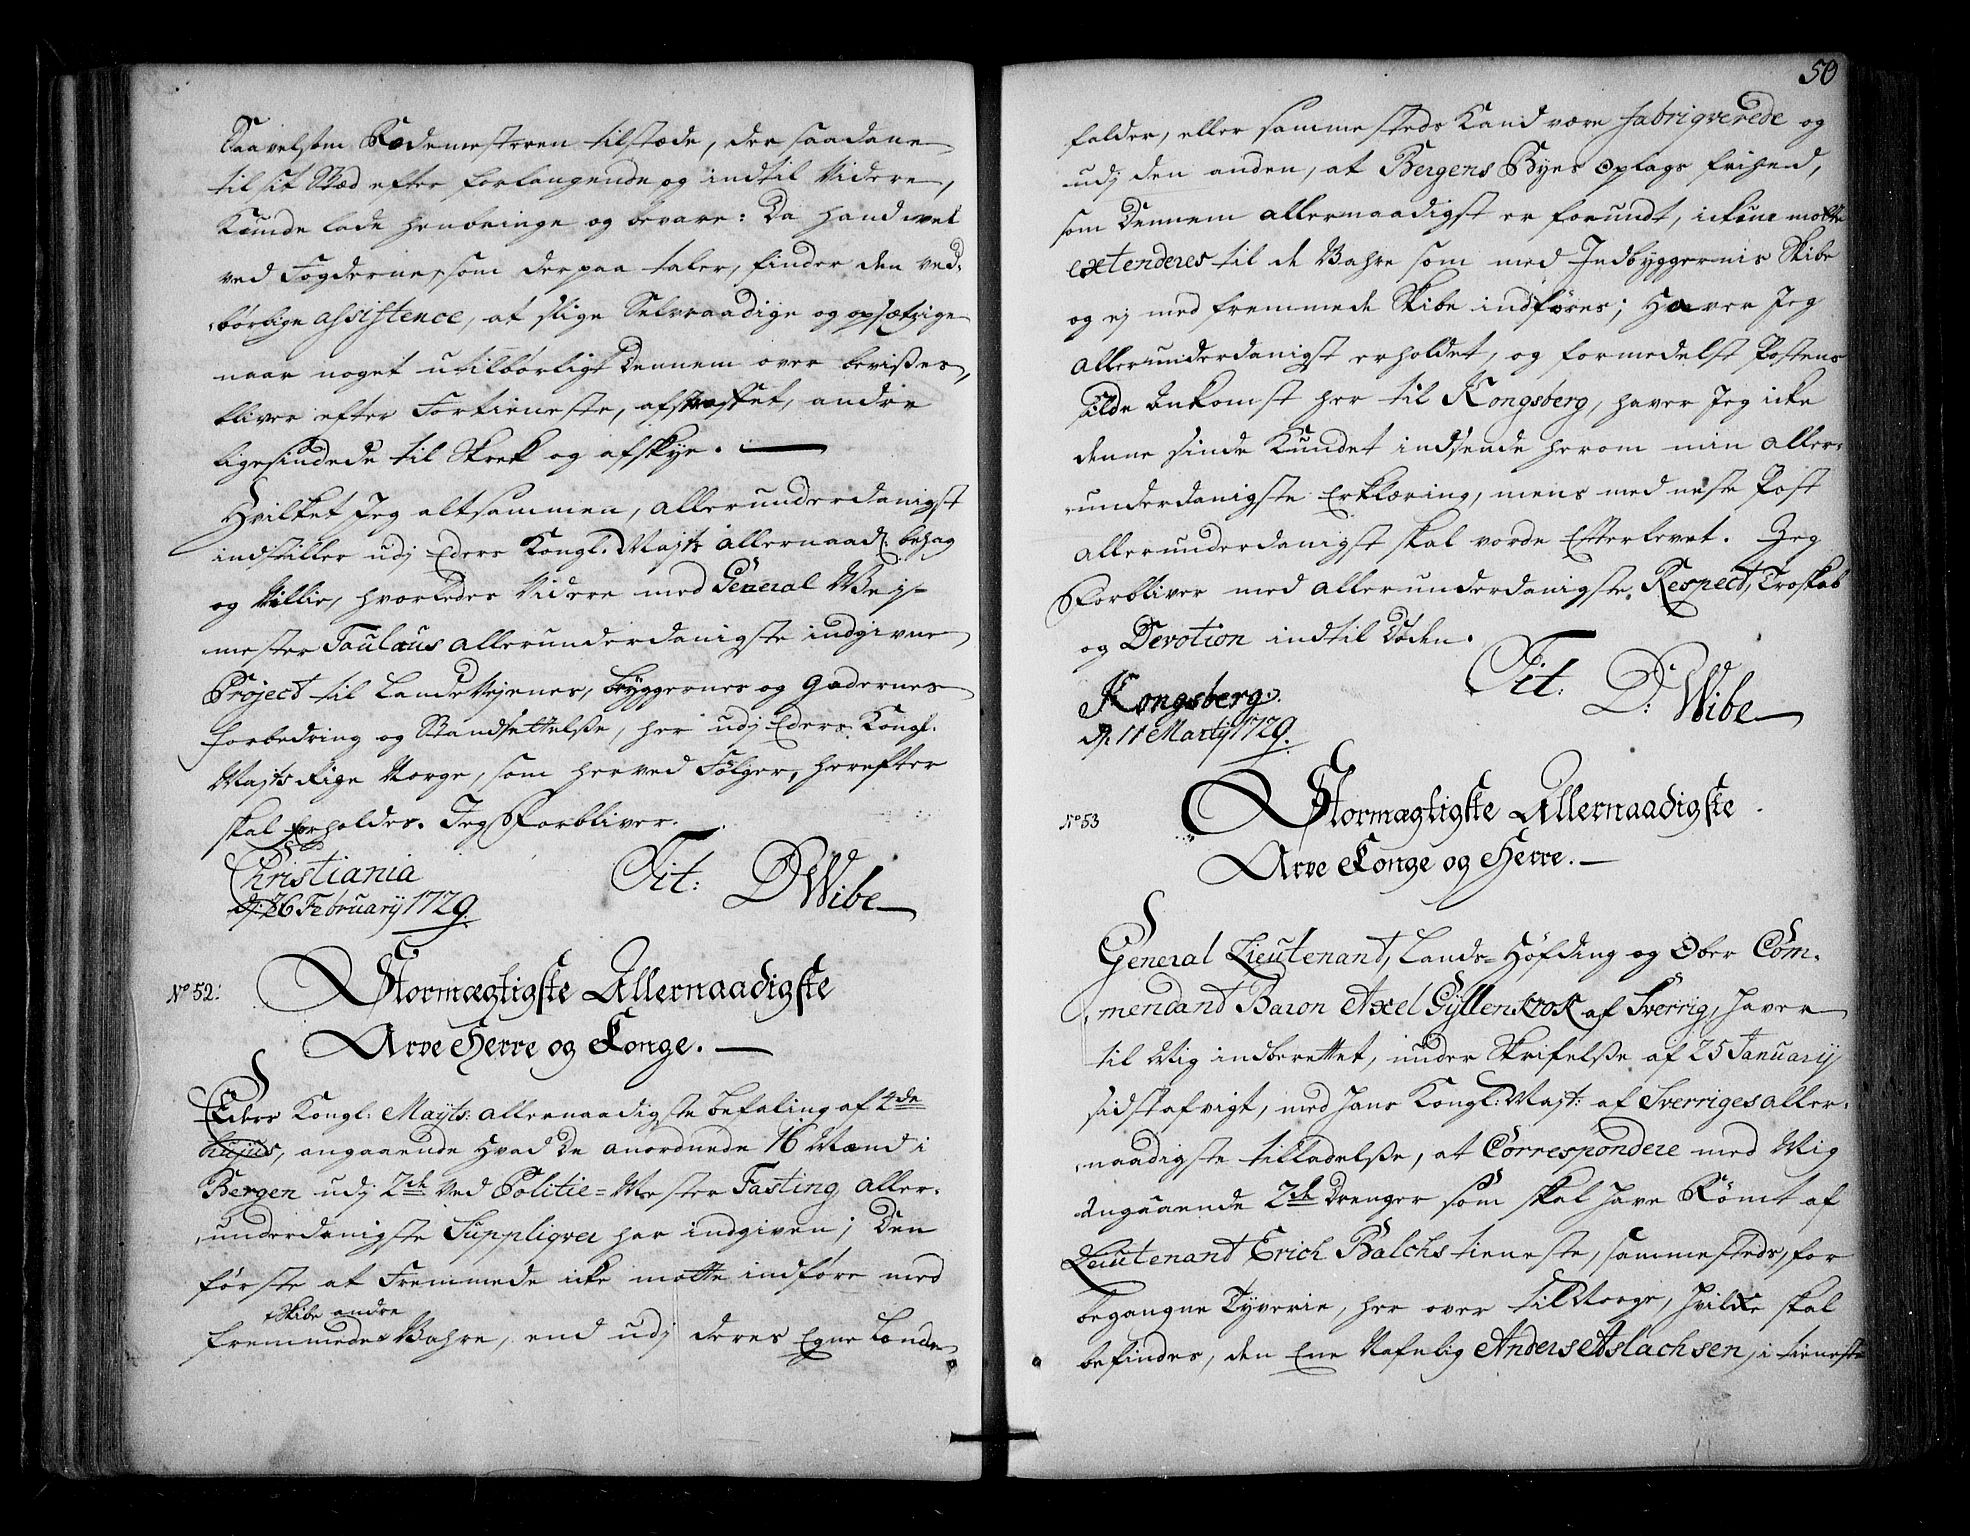 Saavelsom Rodemesteren tilstæde, der saadane
til sit Stæd efter forlangende og indtil Videre,
Kunde lade henbringe og bevare: Da hand vel
ved Fogderne, som derpaa taler, finder den ved-
børlige assistence, at slige Selvraadige og opsætzige
naar noget utilbørligt Dennem over bevisses,
bliver efter Fortieneste, afstraffet, andre
ligesindede til Skrek og afskye. —
Hvilket Jeg altsammen, allerunderdanigst
indstiller udj Eders Kongl. Majts allernaad. behag
og Villie, hvorledes Videre med General Vej-
mester Paulæus allerunderdanigste indgivne
Project til LandeVejenes, bryggernes og Gadernes
forbedring og Standsettelsse, her udj Eders Kongl.
Majts Rige Norge, som herved Følger, herefter
skal forholdes. Jeg Forbliver.
Christiania
d. 26 February 1729.
Tit: DWibe
No 52.
Stormægtigste Allernaadigste
Arve Herre og Konge. —
Eders Kongl: Mayts: allernaadigste befaling af 4de
hujus, angaaende Hvad De anordnede 16 Mænd i
Bergen udj 2de Ved Politie-Mester Fasting aller-
underdanigste Suppliqver har indgiven; Den
første at Fremmede icke motte indføre med
Skibe andre
fremmede Vahre, end udj deres Egne Lande
50
falder, eller sammesteds Kand være fabriqverede og
udj den anden, at Bergens Byes Oplags frihed,
som Dennem allermaadigst er forundt, ickun motte
extenderes til de Vahre som med Indbyggernis Skibe
og ej med fremmede Skibe indføres; Haver Jeg
allerunderdanigst erholdet, og formedelst Postens
silde Ankomst her til Kongsberg, haver Jeg icke
denne sinde Kundet indsende herom min aller-
underdanigste Erklæring, mens med neste Post
allerunderdanigst skal vorde Efterlevet. Jeg
Forbliver med allerunderdanigste Respect, Troskab
og Devotion indtil Døden.
Kongsberg.
d. 11 Martij 1729.
Tit: D: Wibe
No 53
Stormægtigste Allernaadigste
Arve Konge og Herre. —
General Lieutenant, Lands-Høfding og Ober Com-
mendant Baron Axel Gyllenkrok af Sverrig, haver
til Mig indberettet, under Skrifelsse af 25 January
sidstafvigt, med hans Kongl: Majt: af Sverriges aller-
naadigste tilladelsse, at Correspondere med Mig
angaaende 2de Drenger som skal have Rømt af
Lieutenant Erich Balchs tieneste, sammesteds, for
begangne Tyverie, her over til Norge, hvilke skal
befindes, den Ene Nafnlig Anders Aslachsen, i tieneste